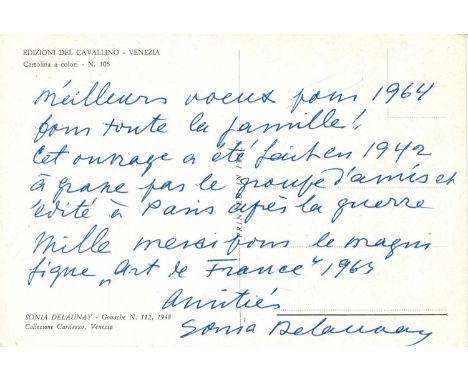 EDIZIONI DEL CAVALLINO - VENEZIA
Cartolina a colori - N. 105
Meilleurs voeux pour 1964
pour toute la famille!
Cet ouvrage a été fait en 1942
à grasse par le groupe d'amis et
édité à Paris après la guerre
Mille merci pour le magni
fique „Art de France" 1963
Amitiés
Sonia Delaunay
SONIA DELAUNAY - Gouache N. 112, 1948
Collezione Cardazzo, Venezia